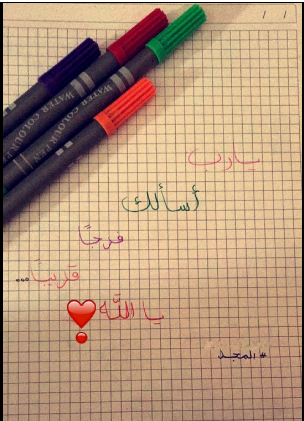 / /
WATER COLOUR PEN
WATER COLOUR PEN
يارب
أسألك
فرجًا
قريبًا...
يا الله❣
#المجد